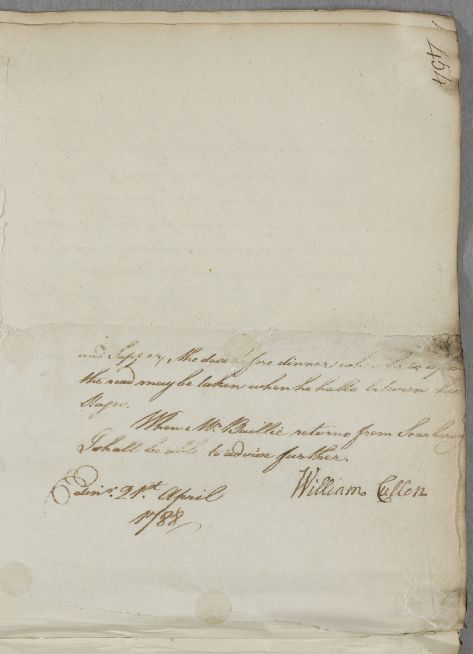 454
and Supper, the dose before dinner when he is upon
the road may be taken when he halts between two
Stages.
When Mr. Baillie returns from Scarboro
I shall be able to advise further.
Edinr. 21st April
1788
William Cullen